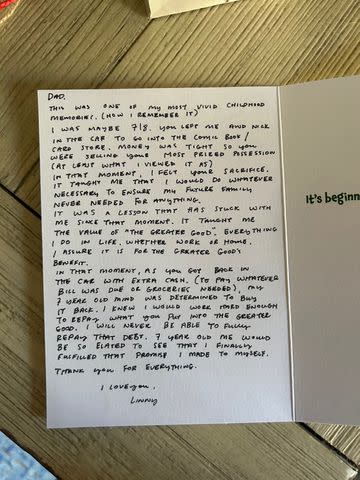 DAD,
THIS WAS ONE OF MY MOST VIVID CHILDHOOD
MEMORIES. (HOW I REMEMBER IT)
I WAS MAYBE 7/8. YOU LEFT ME AND NICK
IN THE CAR TO GO INTO THE COMIC BOOK/
CARD STORE. MONEY WAS TIGHT SO YOU
WERE SELLING YOUR MOST PRIZED POSSESSION
(AT LEAST WHAT I VIEWED IT AS)
IN THAT MOMENT, I FELT YOUR SACRIFICE.
IT TAUGHT ME THAT I WOULD DO WHATEVER
NECESSARY TO ENSURE MY FUTURE FAMILY
NEVER NEEDED FOR ANYTHING.
IT WAS A LESSON THAT HAS STUCK WITH
ME SINCE THAT MOMENT. IT TAUGHT ME
THE VALUE OF "THE GREATER GOOD". EVERYTHING
I DO IN LIFE, WHETHER WORK OR HOME,
I ASSURE IT IS FOR THE GREATER GOOD'S
BENEFIT.
IN THAT MOMENT, AS YOU GOT BACK IN
THE CAR WITH EXTRA CASH, (TO PAY WHATEVER
BILL WAS DUE OR GROCERIES NEEDED), MY
7 YEAR OLD MIND WAS DETERMINED TO BUY
IT BACK. I KNEW I WOULD WORK HARD ENOUGH
TO REPAY WHAT YOU PUT INTO THE GREATER
GOOD. I WILL NEVER BE ABLE TO FULLY
REPAY THAT DEBT. 7 YEAR OLD ME WOULD
BE SO ELATED TO SEE THAT I FINALLY
FULFILLED THAT PROMISE I MADE TO MYSELF.
THANK YOU FOR EVERYTHING.
I LOVE YOU,
LINNY
It's beginn